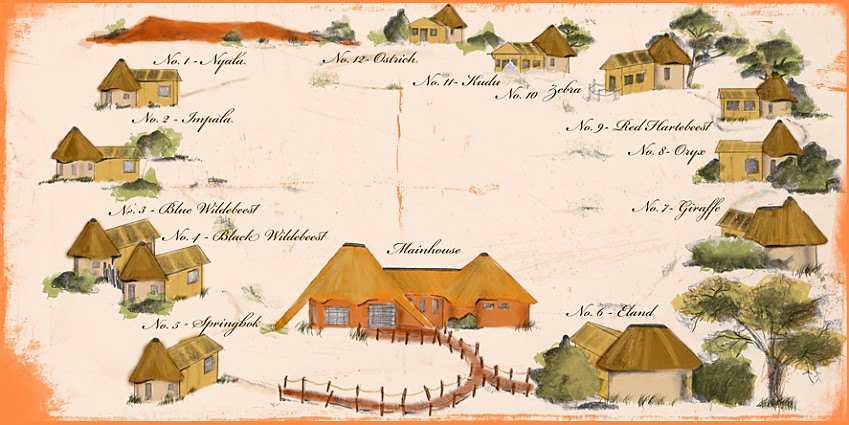 No. 1 - Nyala.
No. 12 - Ostrich.
No. 11 - Kudu
No. 10 Zebra
No. 2 - Impala.
No. 9 - Red Hartebeest
No. 8 - Oryx
No. 3 - Blue Wildebeest
No. 7 - Giraffe
No. 4 - Black Wildebeest
Mainhouse
No. 6 - Eland
No. 5 - Springbok